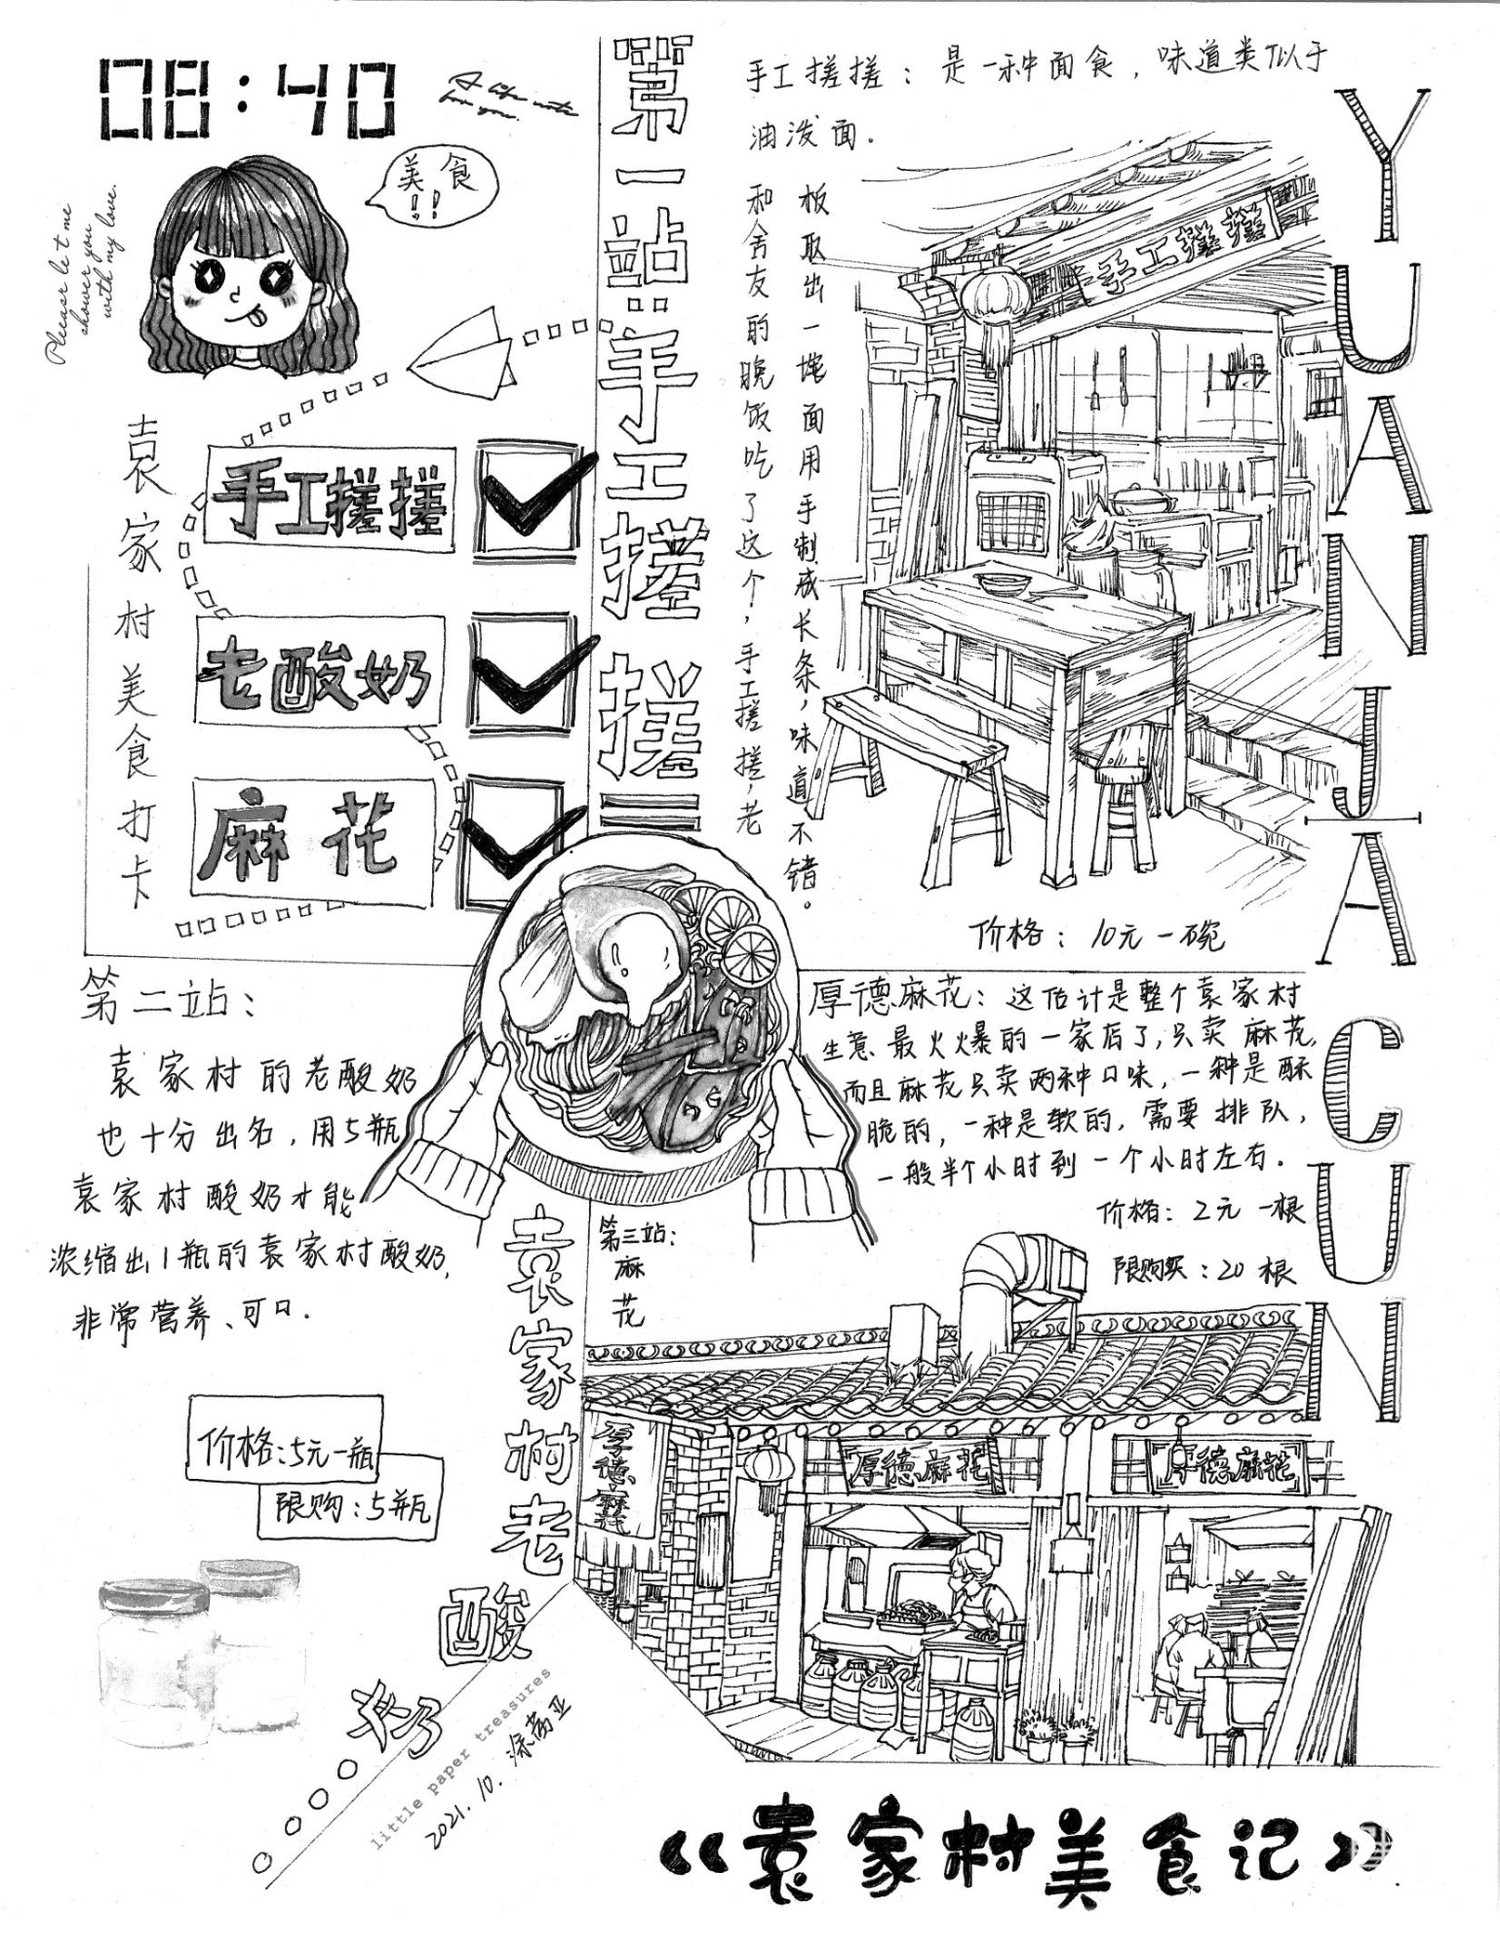 08:40
A life note
for you.
美食
!!
Pleear le t me
shower you
with my love.
袁家村美食打卡
手工搓搓
老酸奶
麻花
第一站:手工搓搓
手工搓搓：是一种面食，味道类似于
油泼面.
和舍友的晚饭吃了这个，手工搓搓，老
板取出一坨面用手制成长条，味道不错。
手工搓搓
价格：10元一碗
YUANJIACUN
第二站：
袁家村的老酸奶
也十分出名，用5瓶
袁家村酸奶才能
浓缩出1瓶的袁家村酸奶,
非常营养、可口.
价格:5元一瓶
限购:5瓶
袁家村老酸奶
第三站:
麻
花
厚德麻花：这估计是整个袁家村
生意最火爆的一家店了,只卖麻花,
而且麻花只卖两种口味，一种是酥
脆的，一种是软的，需要排队，
一般半个小时到一个小时左右.
价格：2元一根
限购买：20根
厚德麻花
厚德麻花
厚德麻花
little paper treasures
2021.10.涂荔亚
《袁家村美食记》